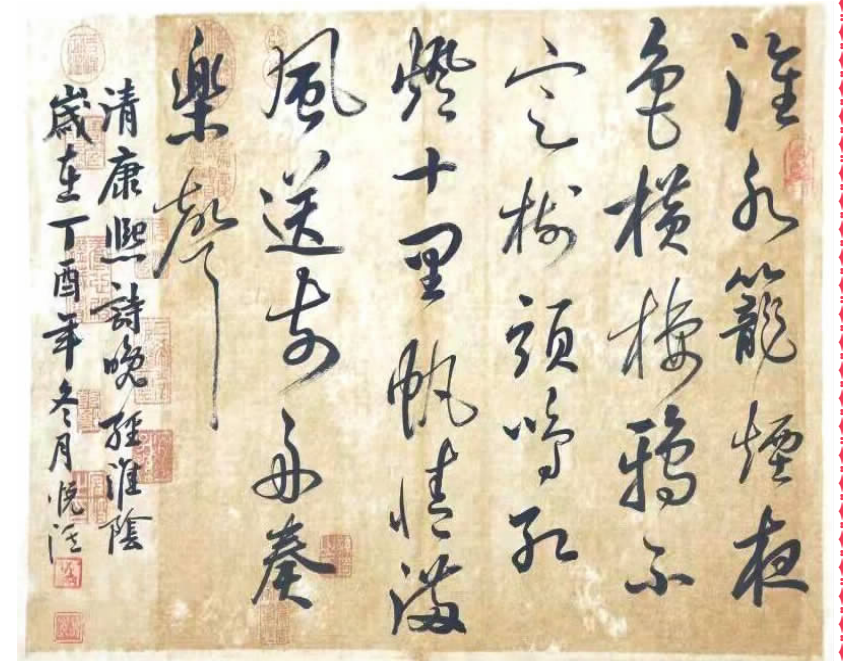 淮水籠煙夜
色橫棲鴉不
定樹頭鳴紅
燈十里帆檣滿
風送前舟奏
樂聲
清康熙詩晚經淮陰
歲在丁酉年冬月悅